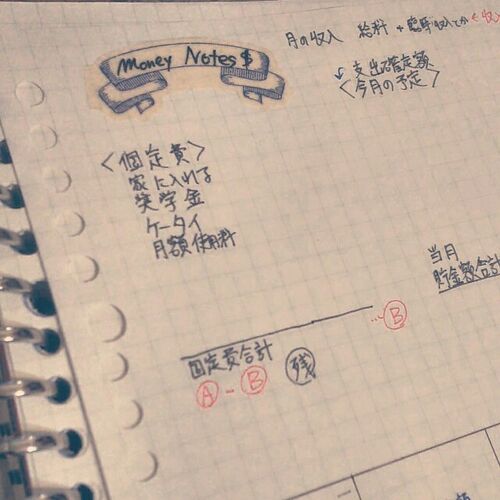 Money Notes $
月の収入 給料 + 臨時収入とか
支出確定額
〈今月の予定〉
〈個定費〉
家に入れる
奨学金
ケータイ
月額使用料
当月
貯金額合計
…Ⓑ
固定費合計
Ⓐ - Ⓑ 残